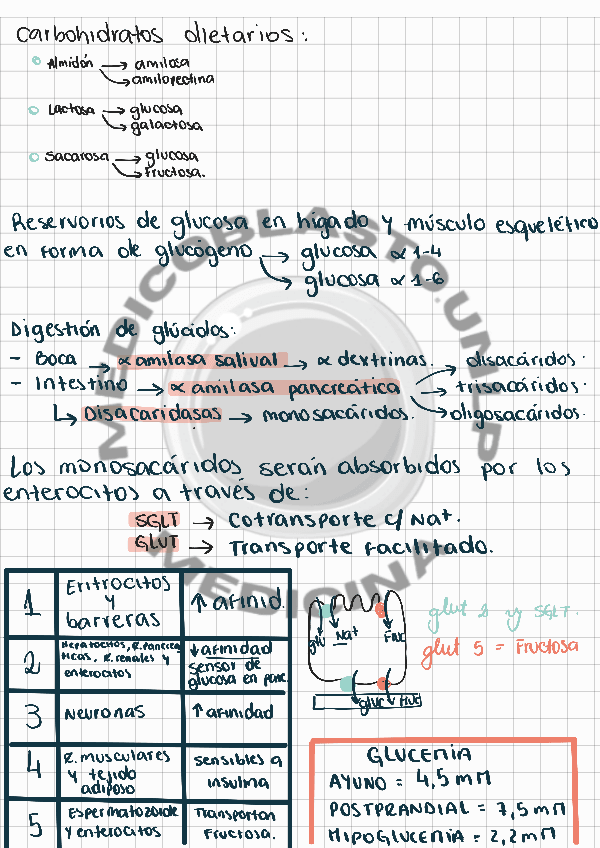 Carbohidratos dietarios:
Almidón → amilosa
→ amilopectina
Lactosa → glucosa
→ galactosa
Sacarosa → glucosa
→ fructosa.
Reservorios de glucosa en hígado y músculo esquelético
en forma de glucógeno → glucosa α 1-4
→ glucosa α 1-6
Digestión de glúcidos:
- Boca → α amilasa salival → α dextrinas.
- Intestino → α amilasa pancreática → disacáridos.
→ trisacáridos.
→ oligosacáridos.
↳ Disacaridasas → monosacáridos.
Los monosacáridos serán absorbidos por los
enterocitos a través de:
SGLT → Cotransporte c/ Na+.
GLUT → Transporte facilitado.
1 Eritrocitos y barreras ↑ afinid.
2 Hepatocitos, R. renales y enterocitos ↓ afinidad sensor de glucosa en panc.
3 Neuronas ↑ afinidad
4 R. musculares y tejido adiposo sensibles a insulina
5 Espermatozoide y enterocitos Transportan fructosa.
glu Na+ Fruc
gluc Fruc
glut 2 y SGLT.
glut 5 = Fructosa
GLUCEMIA
AYUNO = 4,5 mM
POSTPRANDIAL = 7,5 mM
HIPOGLUCEMIA = 2,2 mM
MEDICOBLASTO.UNLP
MEDICINA